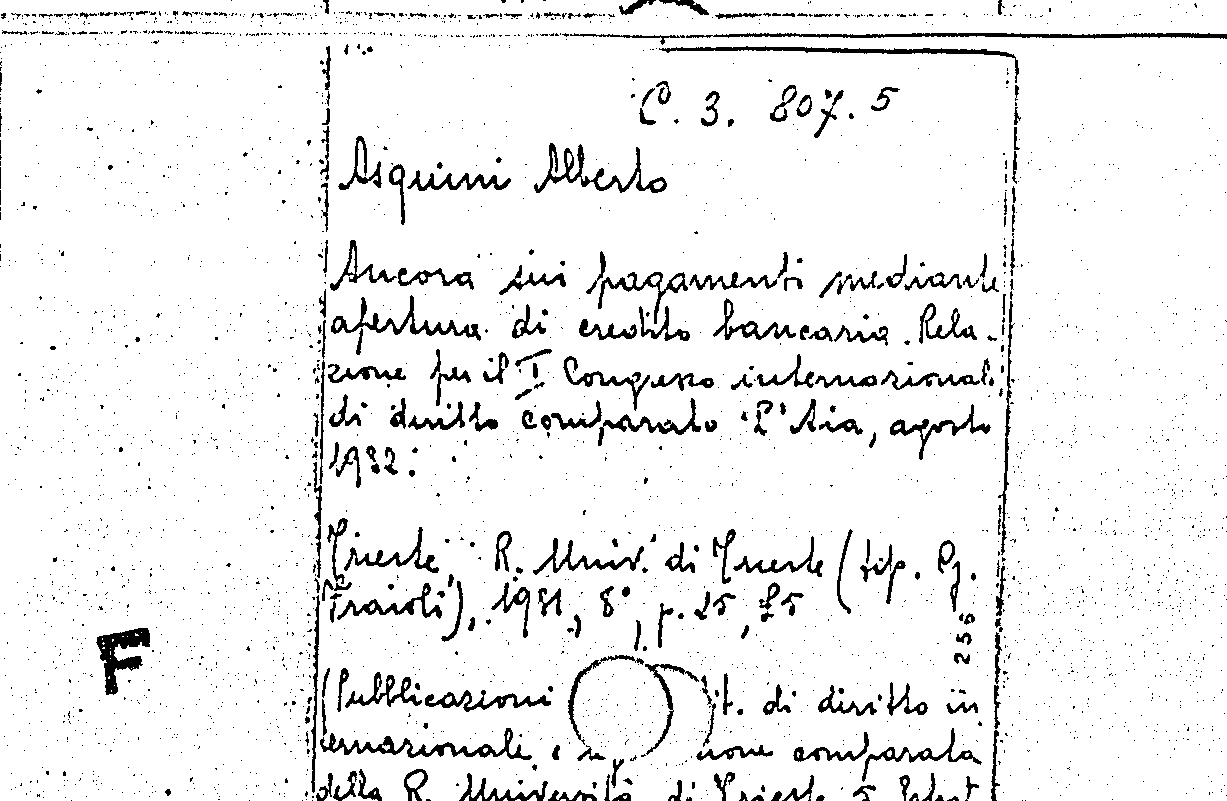 C. 3. 807. 5
Asquini Alberto
Ancora sui pagamenti mediante
apertura di credito bancaria. Rela-
zione per il I Congresso internazionale
di diritto comparato L'Aia, agosto
1932.
Trieste, R. Univ. di Trieste (tip. Pg.
Fraioli), 1931, 8°, p. 25, £5
256
F
(Pubblicazioni it. di diritto in
ternazionale e comparata
della R. Università di Trieste